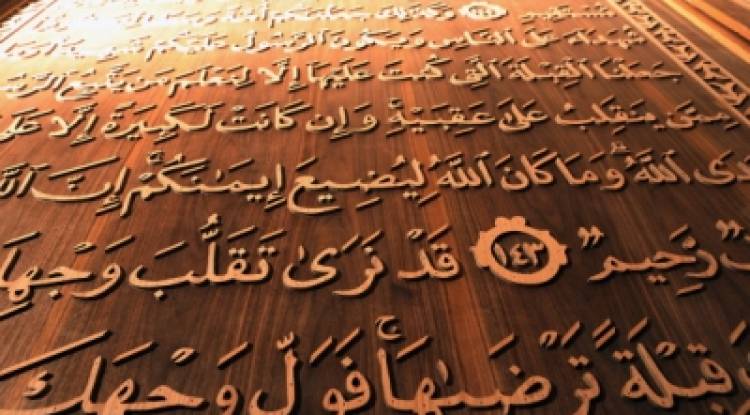 مُّسْتَقِيمٍ ١٤٢ وَكَذَٰلِكَ جَعَلْنَٰكُمْ أُمَّةً
شُهَدَآءَ عَلَى ٱلنَّاسِ وَيَكُونَ ٱلرَّسُولُ عَلَيْكُمْ شَهِيدًا
جَعَلْنَا ٱلْقِبْلَةَ ٱلَّتِى كُنتَ عَلَيْهَآ إِلَّا لِنَعْلَمَ مَن يَتَّبِعُ
مِمَّن يَنقَلِبُ عَلَىٰ عَقِبَيْهِ ۚ وَإِن كَانَتْ لَكَبِيرَةً إِلَّا
ٱللَّهُ ۗ وَمَا كَانَ ٱللَّهُ لِيُضِيعَ إِيمَٰنَكُمْ ۚ إِنَّ
رَّحِيمٌ ١٤٣ قَدْ نَرَىٰ تَقَلُّبَ
قِبْلَةً تَرْضَىٰهَا ۚ فَوَلِّ وَجْهَكَ